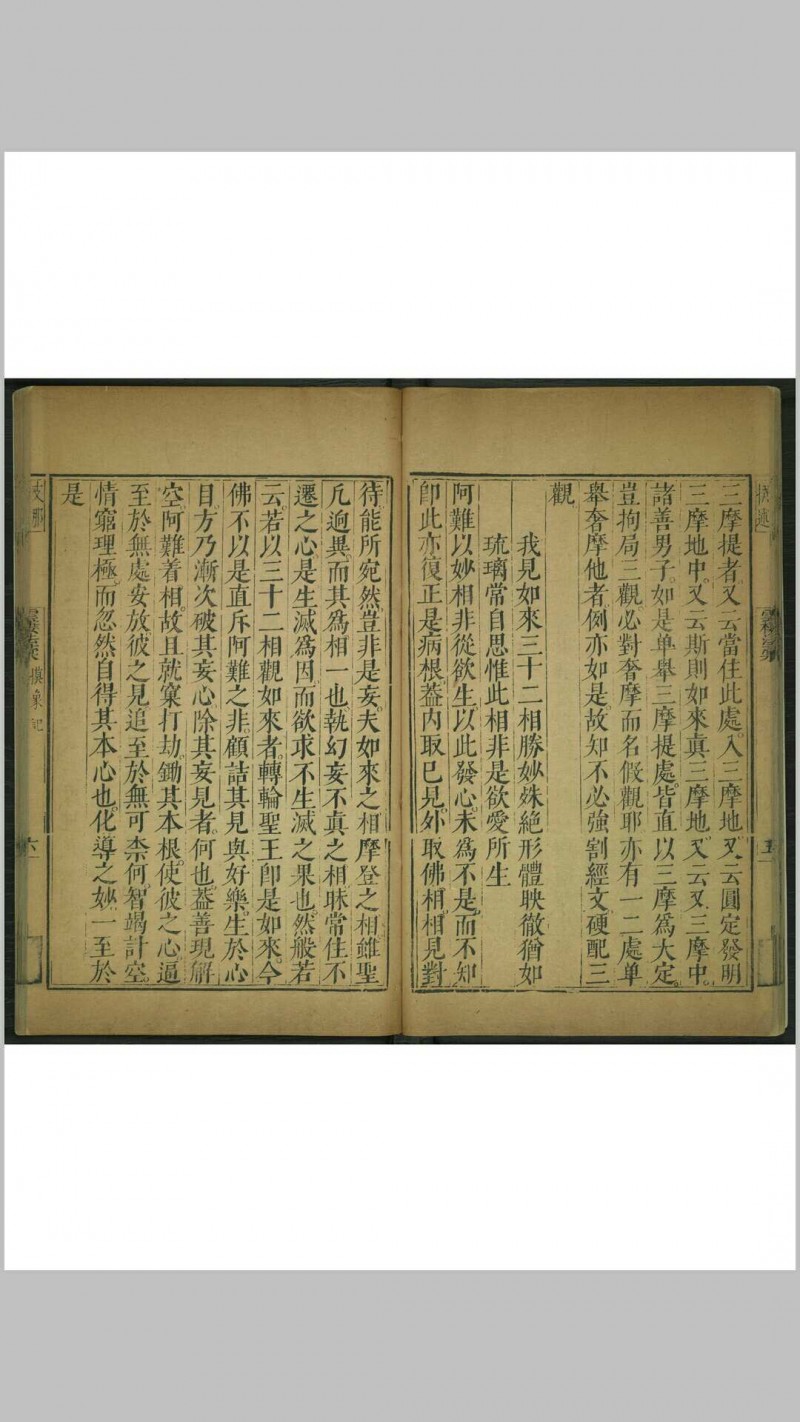 三摩提者又云當住此處入三摩地又云圓定發明
三摩地中又云斯則如來真三摩地又云又三摩中
諸善男子如是单舉三摩提處皆直以三摩爲大定
豈拘局三觀必對奢摩而名假觀耶亦有一二處单
舉奢摩他者例亦如是故知不必強割經文硬配三
觀
我見如來三十二相勝妙殊絕形體映徹猶如
琉璃常自思惟此相非是欲愛所生
阿難以妙相非從欲生以此發心未爲不是而不知
卽此亦復正是病根葢内取已見外取佛相相見對
待能所宛然豈非是妄夫如來之相摩登之相雖聖
凡逈異而其爲相一也執幻妄不真之相昧常住不
遷之心是生滅爲因而欲求不生滅之果也然般若
云若以三十二相觀如來者轉輪聖王卽是如來今
佛不以是直斥阿難之非顧詰其見與好樂生於心
目方乃漸次破其妄心除其妄見者何也葢善現解
空阿難着相故且就窠打劫鋤其本根使彼之心逼
至於無處安放彼之見追至於無可柰何智竭計空
情窮理極而忽然自得其本心也化導之妙一至於
是
摸象記
六
五